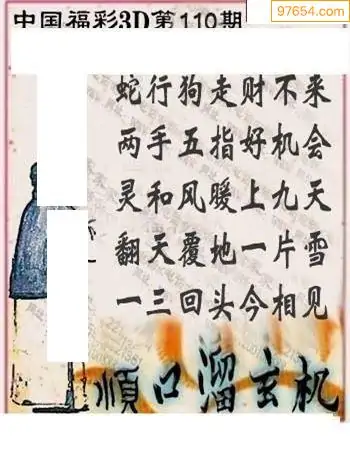 97654.com
中国福彩3D第110期
蛇行狗走财不来
两手五指好机会
灵和风暖上九天
翻天覆地一片雪
一三回头今相见
顺口溜玄机